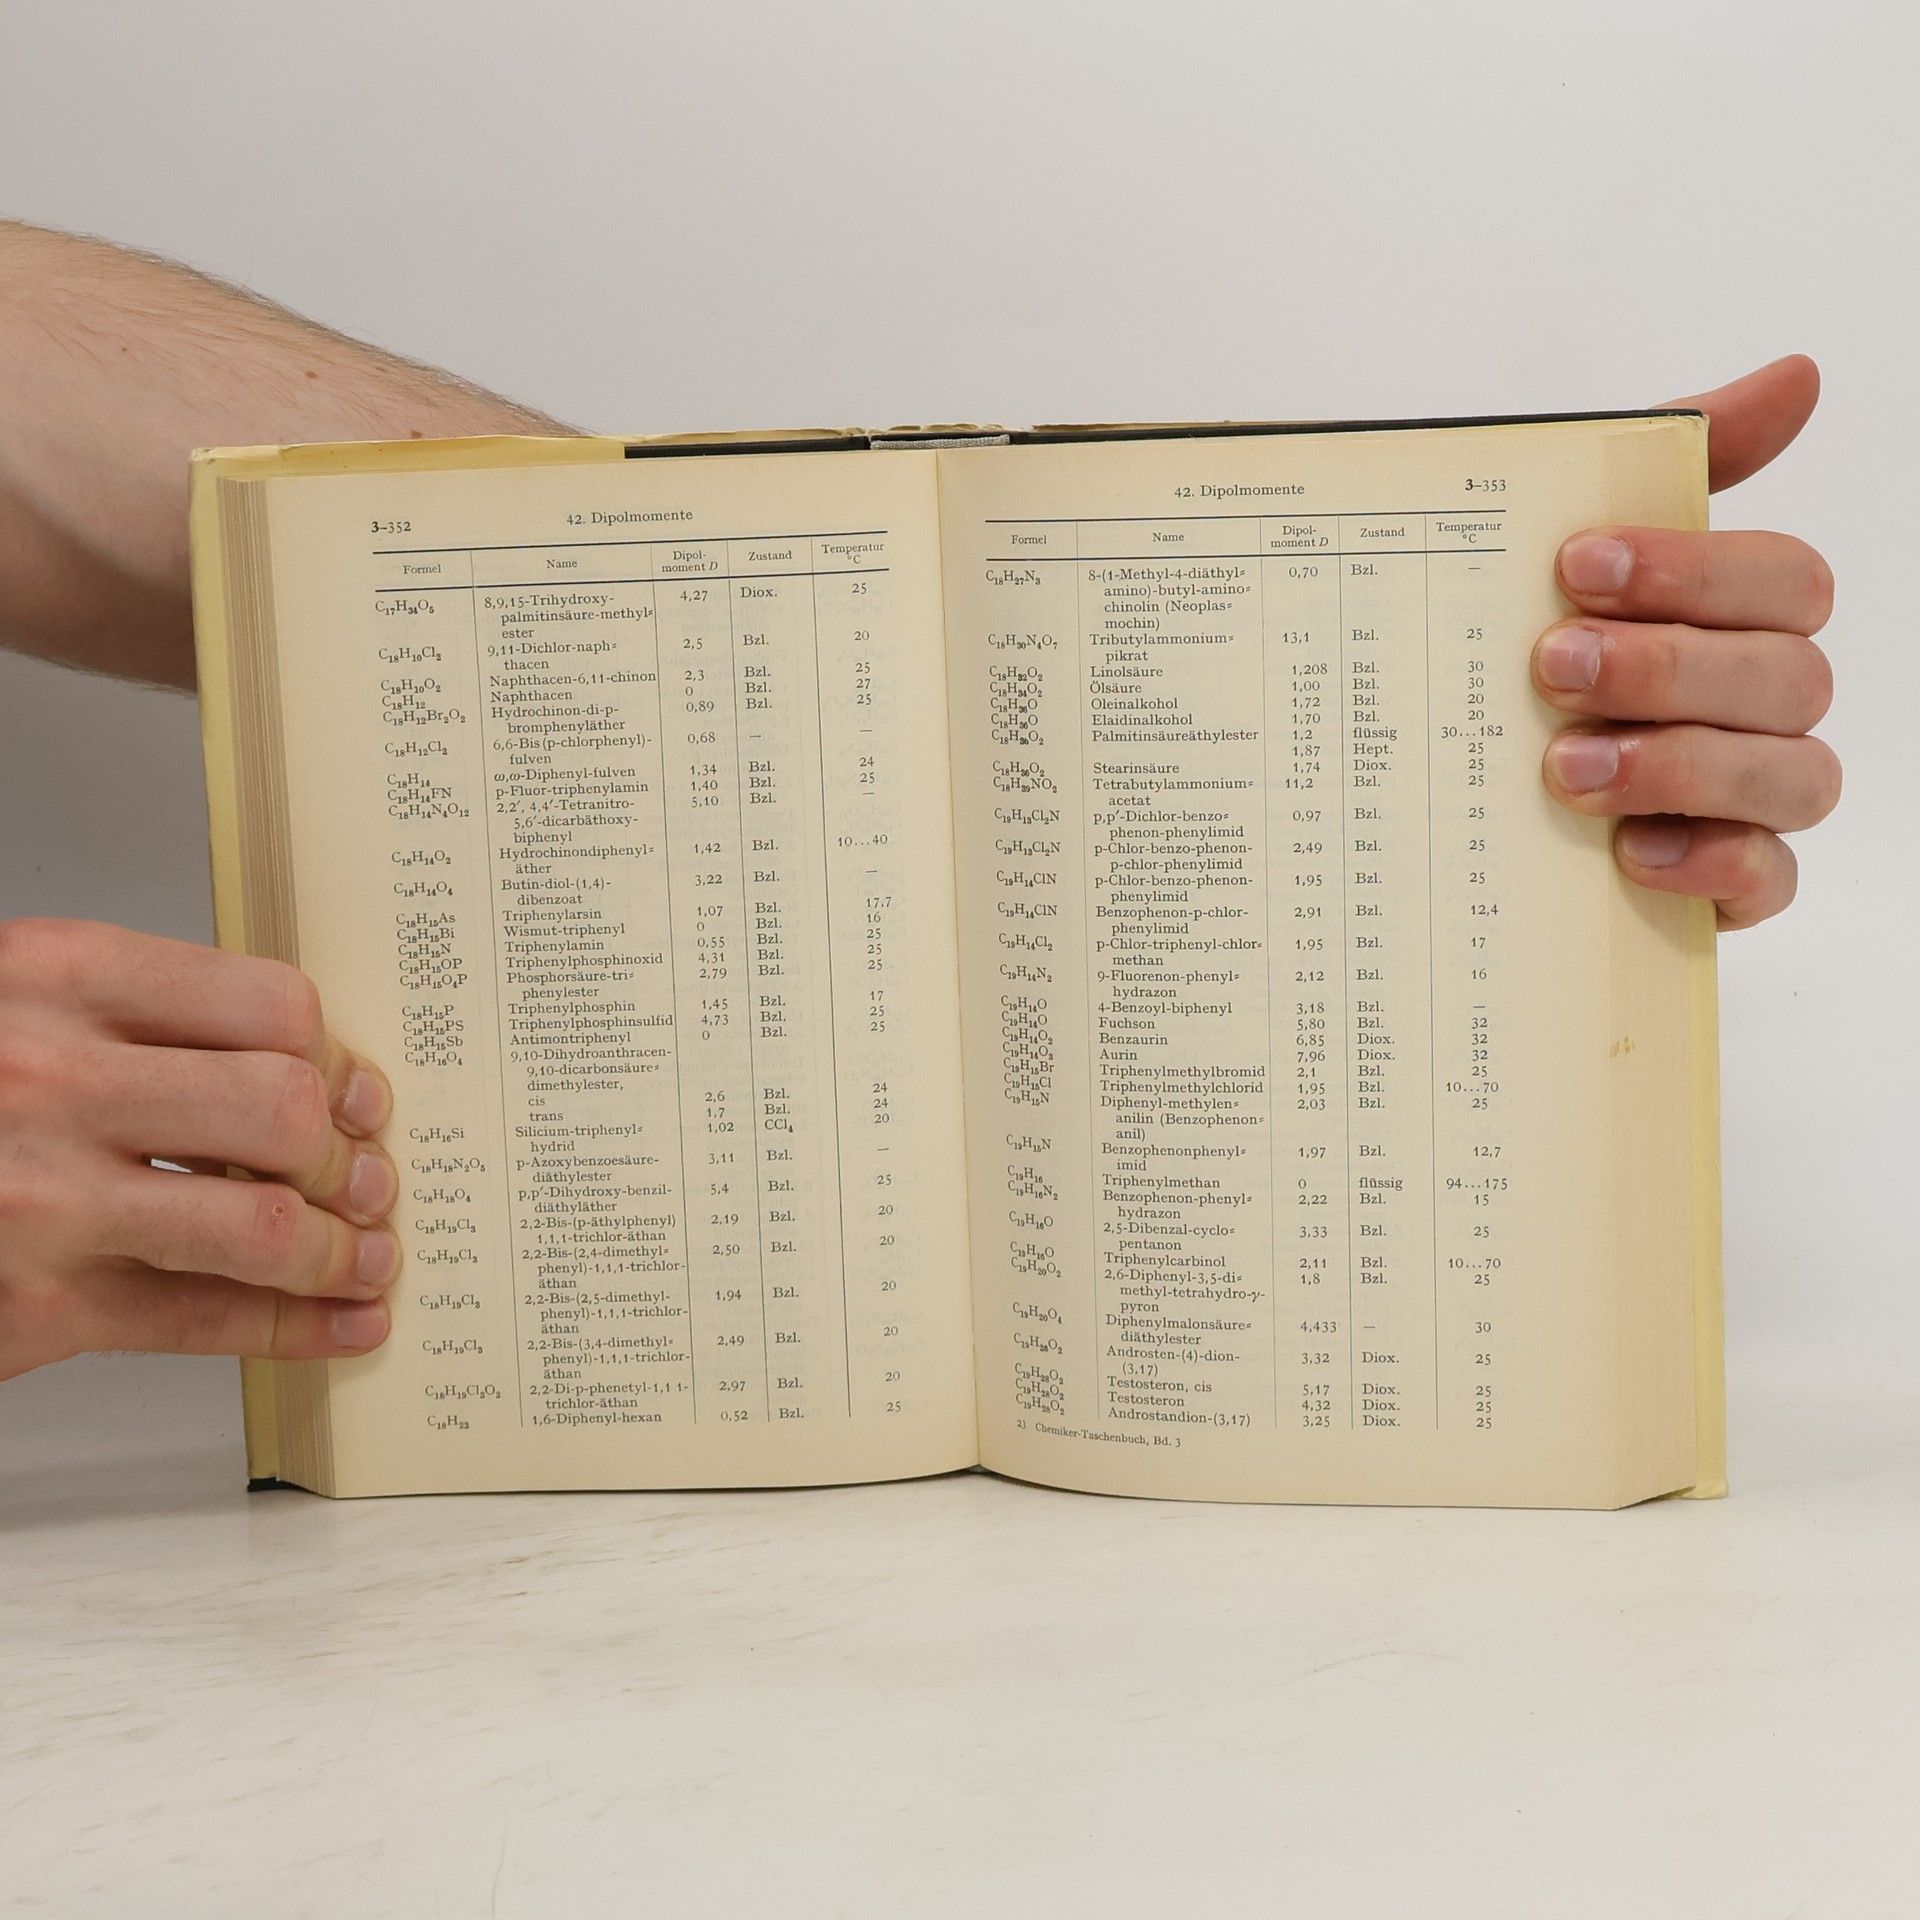 3–352
42. Dipolmomente
Formel Name Dipol- moment D Zustand Temperatur °C
C₁₇H₃₄O₅ 8,9,15-Trihydroxy- 4,27 Diox. 25
palmitinsäure-methyl=
ester
C₁₈H₁₀Cl₂ 9,11-Dichlor-naph= 2,5 Bzl. 20
thacen
C₁₈H₁₀O₂ Naphthacen-6,11-chinon 2,3 Bzl. 25
C₁₈H₁₂ Naphthacen 0 Bzl. 27
C₁₈H₁₂Br₂O₂ Hydrochinon-di-p- 0,89 Bzl. 25
bromphenyläther
C₁₈H₁₂Cl₂ 6,6-Bis(p-chlorphenyl)- 0,68 — —
fulven
C₁₈H₁₄ ω,ω-Diphenyl-fulven 1,34 Bzl. 24
C₁₈H₁₄FN p-Fluor-triphenylamin 1,40 Bzl. 25
C₁₈H₁₄N₄O₁₂ 2,2′, 4,4′-Tetranitro- 5,10 Bzl. —
5,6′-dicarbäthoxy-
biphenyl
C₁₈H₁₄O₂ Hydrochinondiphenyl= 1,42 Bzl. 10...40
äther
C₁₈H₁₄O₄ Butin-diol-(1,4)- 3,22 Bzl. —
dibenzoat
C₁₈H₁₅As Triphenylarsin 1,07 Bzl. 17,7
C₁₈H₁₅Bi Wismut-triphenyl 0 Bzl. 16
C₁₈H₁₅N Triphenylamin 0,55 Bzl. 25
C₁₈H₁₅OP Triphenylphosphinoxid 4,31 Bzl. 25
C₁₈H₁₅O₄P Phosphorsäure-tri= 2,79 Bzl. 25
phenylester
C₁₈H₁₅P Triphenylphosphin 1,45 Bzl. 17
C₁₈H₁₅PS Triphenylphosphinsulfid 4,73 Bzl. 25
C₁₈H₁₅Sb Antimontriphenyl 0 Bzl. 25
C₁₈H₁₆O₄ 9,10-Dihydroanthracen-
9,10-dicarbonsäure=
dimethylester,
cis 2,6 Bzl. 24
trans 1,7 Bzl. 24
C₁₈H₁₆Si Silicium-triphenyl= 1,02 CCl₄ 20
hydrid
C₁₈H₁₈N₂O₅ p-Azoxybenzoesäure- 3,11 Bzl. —
diäthylester
C₁₈H₁₈O₄ p,p′-Dihydroxy-benzil- 5,4 Bzl. 25
diäthyläther
C₁₈H₁₉Cl₃ 2,2-Bis-(p-äthylphenyl) 2,19 Bzl. 20
1,1,1-trichlor-äthan
C₁₈H₁₉Cl₃ 2,2-Bis-(2,4-dimethyl= 2,50 Bzl. 20
phenyl)-1,1,1-trichlor-
äthan
C₁₈H₁₉Cl₃ 2,2-Bis-(2,5-dimethyl- 1,94 Bzl. 20
phenyl)-1,1,1-trichlor-
äthan
C₁₈H₁₉Cl₃ 2,2-Bis-(3,4-dimethyl= 2,49 Bzl. 20
phenyl)-1,1,1-trichlor-
äthan
C₁₈H₁₉Cl₃O₂ 2,2-Di-p-phenetyl-1,1 1- 2,97 Bzl. 20
trichlor-äthan
C₁₈H₂₂ 1,6-Diphenyl-hexan 0,52 Bzl. 25
42. Dipolmomente
3–353
Formel Name Dipol- moment D Zustand Temperatur °C
C₁₈H₂₇N₃ 8-(1-Methyl-4-diäthyl= 0,70 Bzl. —
amino)-butyl-amino=
chinolin (Neoplas=
mochin)
C₁₈H₃₀N₄O₇ Tributylammonium= 13,1 Bzl. 25
pikrat
C₁₈H₃₂O₂ Linolsäure 1,208 Bzl. 30
C₁₈H₃₄O₂ Ölsäure 1,00 Bzl. 30
C₁₈H₃₆O Oleinalkohol 1,72 Bzl. 20
C₁₈H₃₆O Elaidinalkohol 1,70 Bzl. 20
C₁₈H₃₆O₂ Palmitinsäureäthylester 1,2 flüssig 30...182
1,87 Hept. 25
C₁₈H₃₆O₂ Stearinsäure 1,74 Diox. 25
C₁₈H₃₉NO₂ Tetrabutylammonium= 11,2 Bzl. 25
acetat
C₁₉H₁₃Cl₂N p,p′-Dichlor-benzo= 0,97 Bzl. 25
phenon-phenylimid
C₁₉H₁₃Cl₂N p-Chlor-benzo-phenon- 2,49 Bzl. 25
p-chlor-phenylimid
C₁₉H₁₄ClN p-Chlor-benzo-phenon- 1,95 Bzl. 25
phenylimid
C₁₉H₁₄ClN Benzophenon-p-chlor- 2,91 Bzl. 12,4
phenylimid
C₁₉H₁₄Cl₂ p-Chlor-triphenyl-chlor= 1,95 Bzl. 17
methan
C₁₉H₁₄N₂ 9-Fluorenon-phenyl= 2,12 Bzl. 16
hydrazon
C₁₉H₁₄O 4-Benzoyl-biphenyl 3,18 Bzl. —
C₁₉H₁₄O Fuchson 5,80 Bzl. 32
C₁₉H₁₄O₂ Benzaurin 6,85 Diox. 32
C₁₉H₁₄O₃ Aurin 7,96 Diox. 32
C₁₉H₁₅Br Triphenylmethylbromid 2,1 Bzl. 25
C₁₉H₁₅Cl Triphenylmethylchlorid 1,95 Bzl. 10...70
C₁₉H₁₅N Diphenyl-methylen= 2,03 Bzl. 25
anilin (Benzophenon=
anil)
C₁₉H₁₅N Benzophenonphenyl= 1,97 Bzl. 12,7
imid
C₁₉H₁₆ Triphenylmethan 0 flüssig 94...175
C₁₉H₁₆N₂ Benzophenon-phenyl= 2,22 Bzl. 15
hydrazon
C₁₉H₁₆O 2,5-Dibenzal-cyclo= 3,33 Bzl. 25
pentanon
C₁₉H₁₆O Triphenylcarbinol 2,11 Bzl. 10...70
C₁₉H₂₀O₂ 2,6-Diphenyl-3,5-di= 1,8 Bzl. 25
methyl-tetrahydro-γ-
pyron
C₁₉H₂₀O₄ Diphenylmalonsäure= 4,433 — 30
diäthylester
C₁₉H₂₆O₂ Androsten-(4)-dion- 3,32 Diox. 25
(3,17)
C₁₉H₂₈O₂ Testosteron, cis 5,17 Diox. 25
C₁₉H₂₈O₂ Testosteron 4,32 Diox. 25
C₁₉H₂₈O₂ Androstandion-(3,17) 3,25 Diox. 25
23 Chemiker-Taschenbuch, Bd. 3